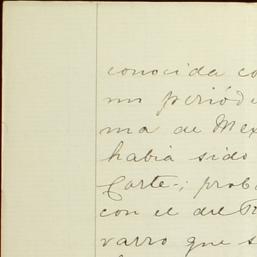 conocida co
un periód
ma de Mex
había sido
Corte-; prob
con el del R
varro que s